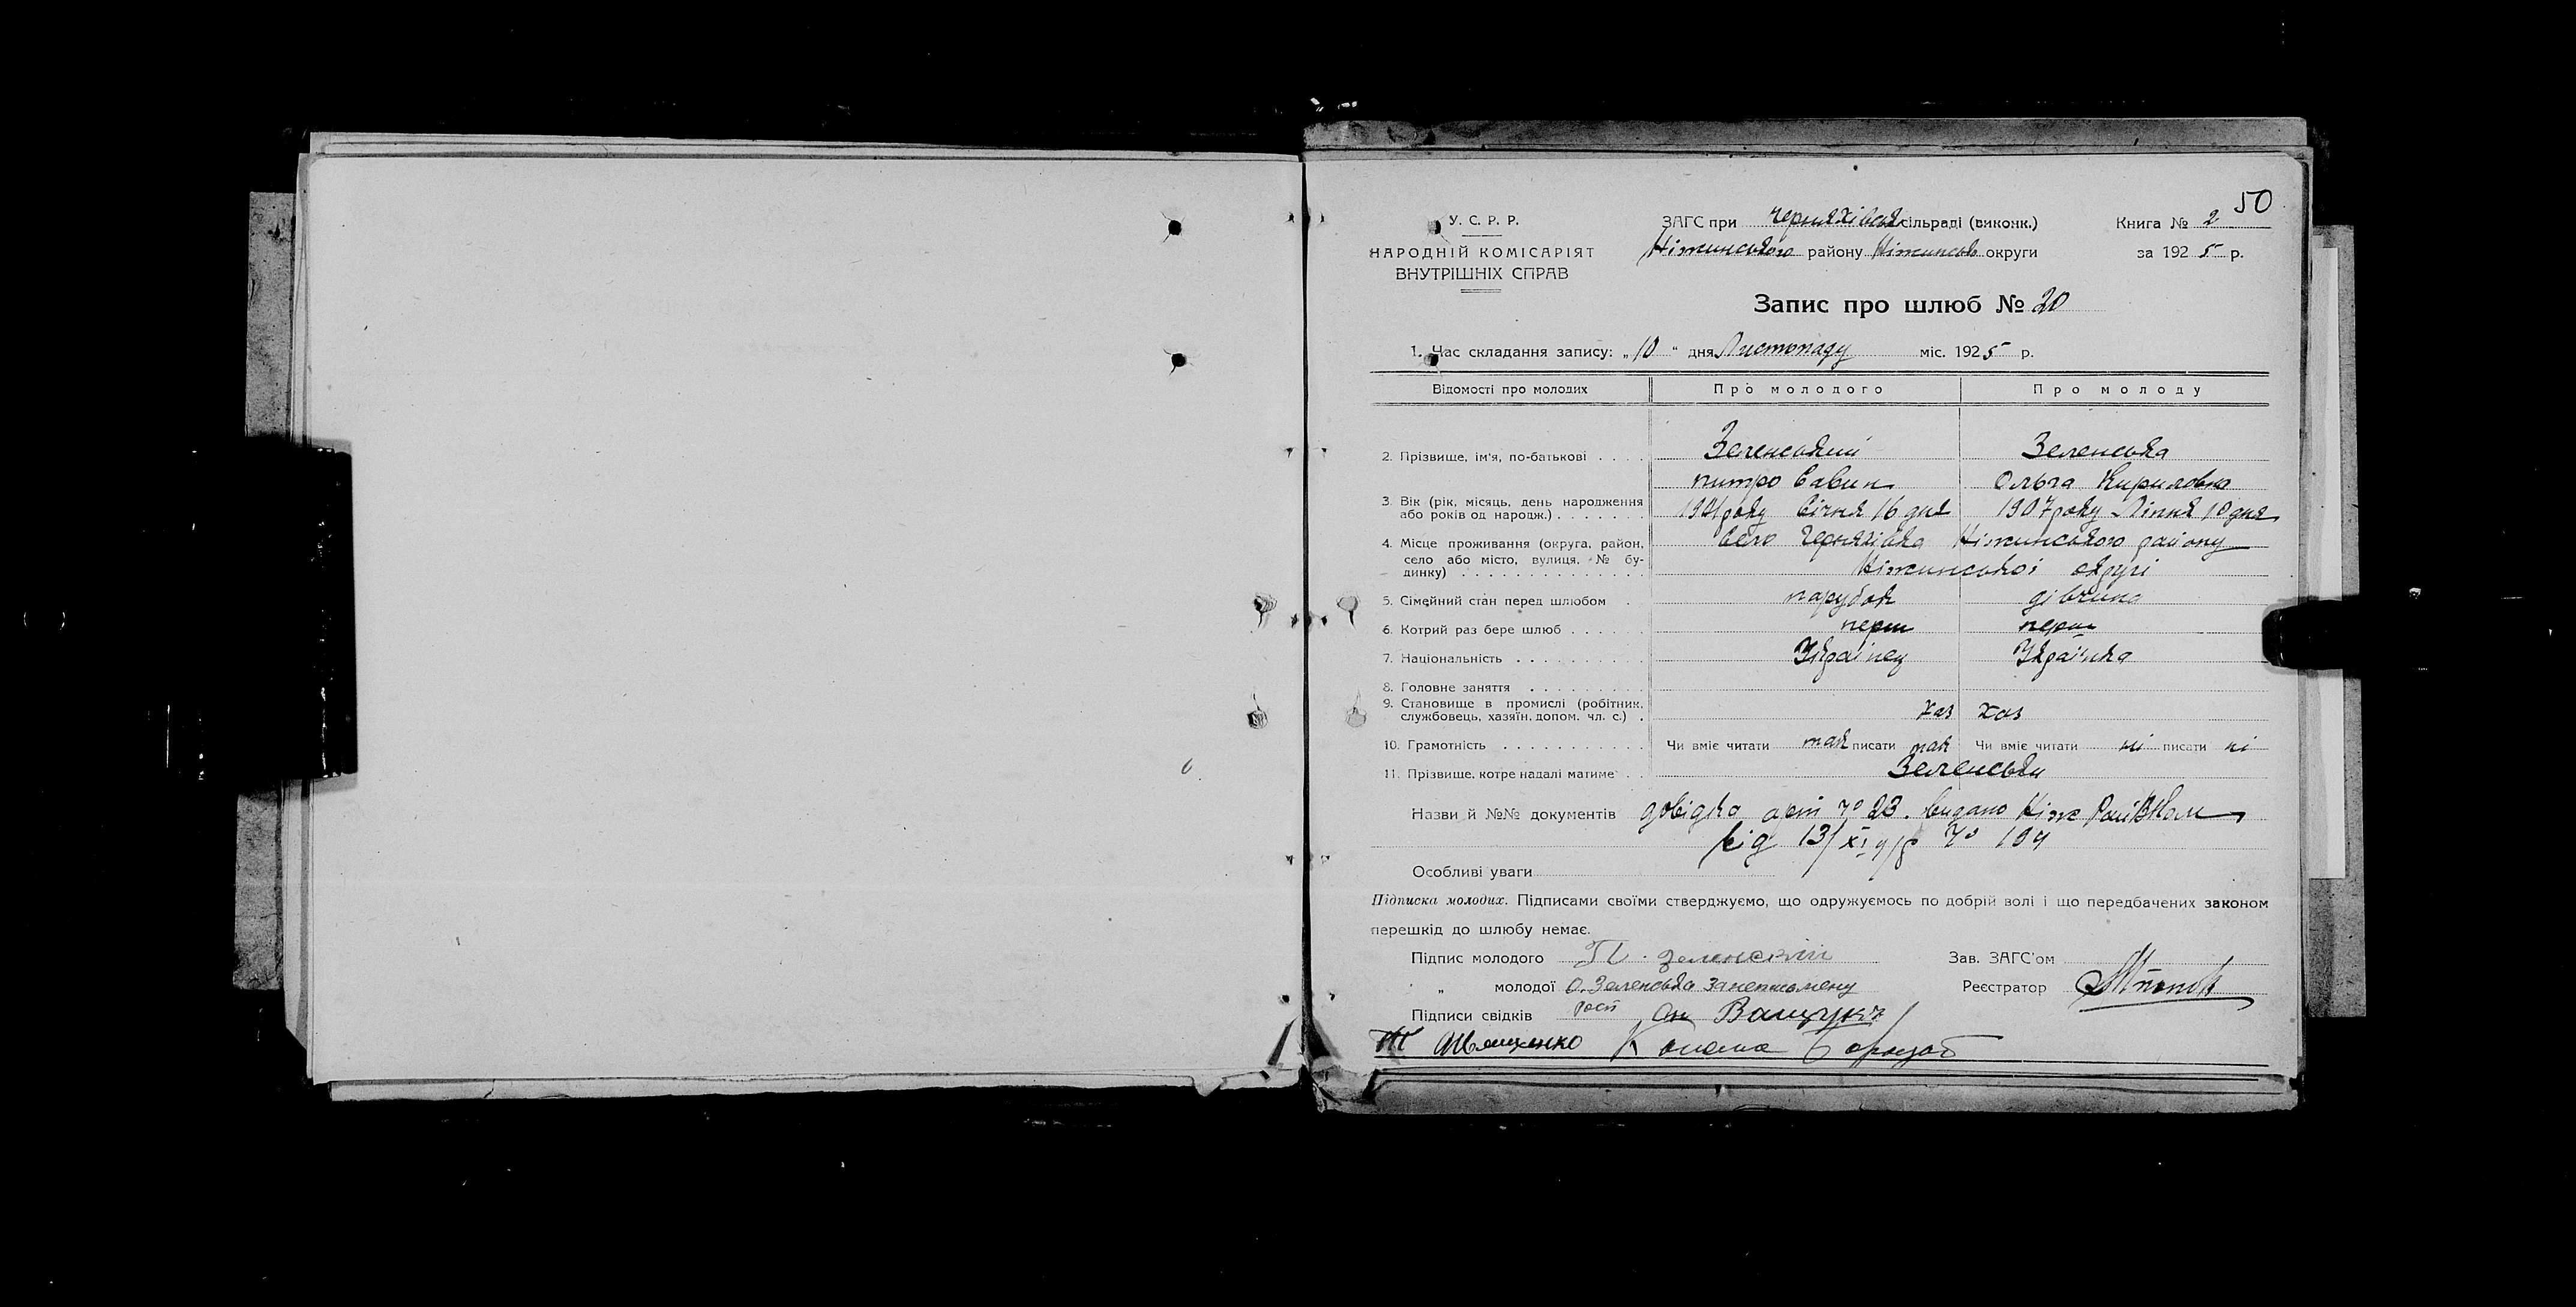 50
У. С. Р. Р.
НАРОДНІЙ КОМІСАРІЯТ
ВНУТРІШНІХ СПРАВ
ЗАГС при Черняхівськ сільраді (виконк.)
Ніжинського району Ніжинськ округи
Книга № 2
за 1925 р.
Запис про шлюб № 20
1. Час складання запису: „10“ дня Листопаду міс. 1925 р.
Відомості про молодих Про молодого Про молоду
2. Прізвище, ім'я, по-батькові . . . . Зеленський Зеленська
питро Савин Ольга Кириловна
3. Вік (рік, місяць, день народження
або років од народж.) . . . . . . . 1901 року Січня 16 дня 1907 року Липня 10 дня
4. Місце проживання (округа, район, село Черняхівка Ніжинського району
село або місто, вулиця, № бу-
динку) . . . . . . . . . . . . . . Ніжинської округі
5. Сімейний стан перед шлюбом . парубок дівчина
6. Котрий раз бере шлюб . . . . . . перш перш
7. Національність . . . . . . . . . . Українец Українка
8. Головне заняття . . . . . . . . .
9. Становище в промислі (робітник,
службовець, хазяїн, допом. чл. с.) . хаз хаз
10. Грамотність . . . . . . . . . . . Чи вміє читати так писати так Чи вміє читати ні писати ні
11. Прізвище, котре надалі матиме . . Зеленськи
Назви й №№ документів довідка акт № 23. видано Ніж РайВКом
від 13/XI № 194
Особливі уваги
Підписка молодих. Підписами своїми стверджуємо, що одружуємось по добрій волі і що передбачених законом
перешкід до шлюбу немає.
Підпис молодого П. Зеленский Зав. ЗАГС'ом
„ молодої О. Зеленська За неписьмену Реєстратор
Підписи свідків